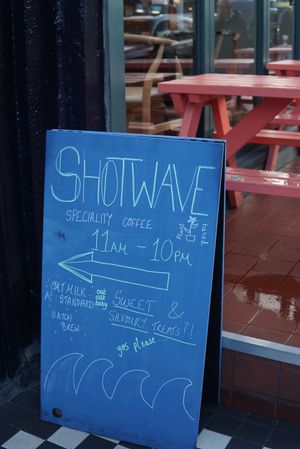 SHOTWAVE
SPECIALITY COFFEE
11AM - 10PM
Plant
based
OAT MILK
AS STANDARD
oat
oat
baby
BATCH
BREW
SWEET &
SAVOURY TREATS?!
yes please...